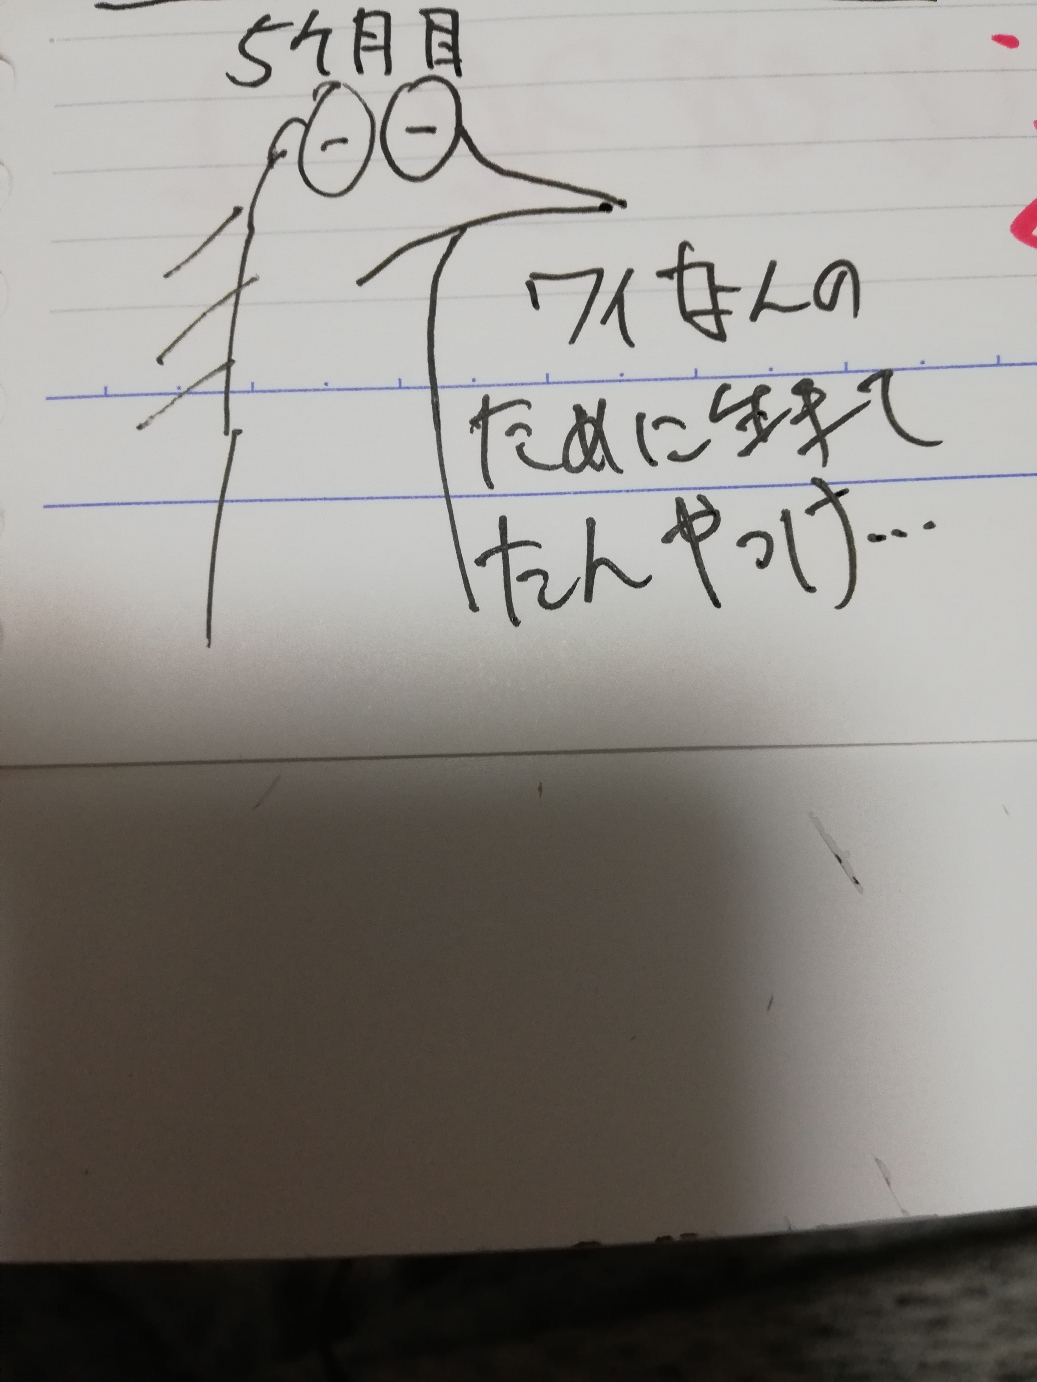 5ヶ月目
ワイなんの
ために生きて
たんやっけ…